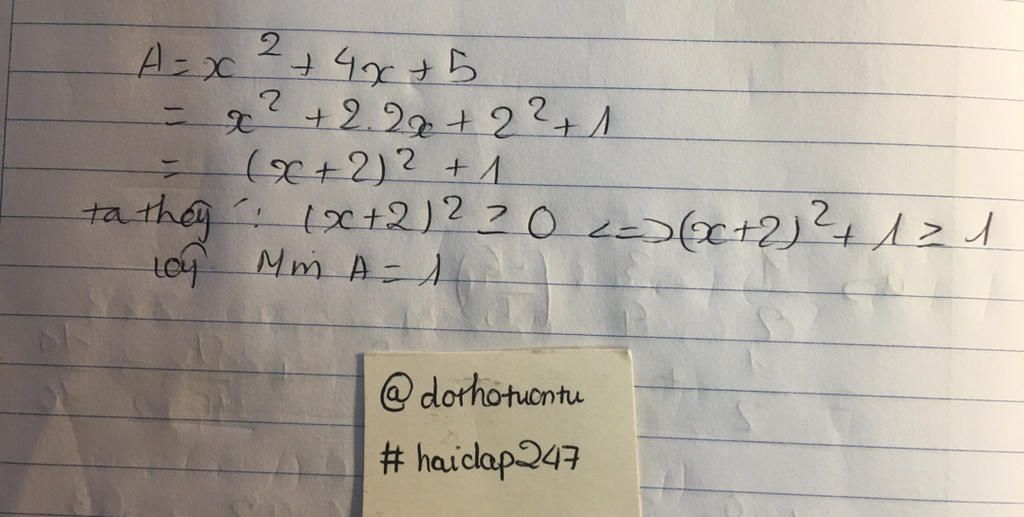 A = x² + 4x + 5
= x² + 2.2x + 2² + 1
= (x+2)² + 1
ta thấy : (x+2)² ≥ 0 <=> (x+2)² + 1 ≥ 1
Vậy Min A = 1
@dorhotuontu
#haidap247